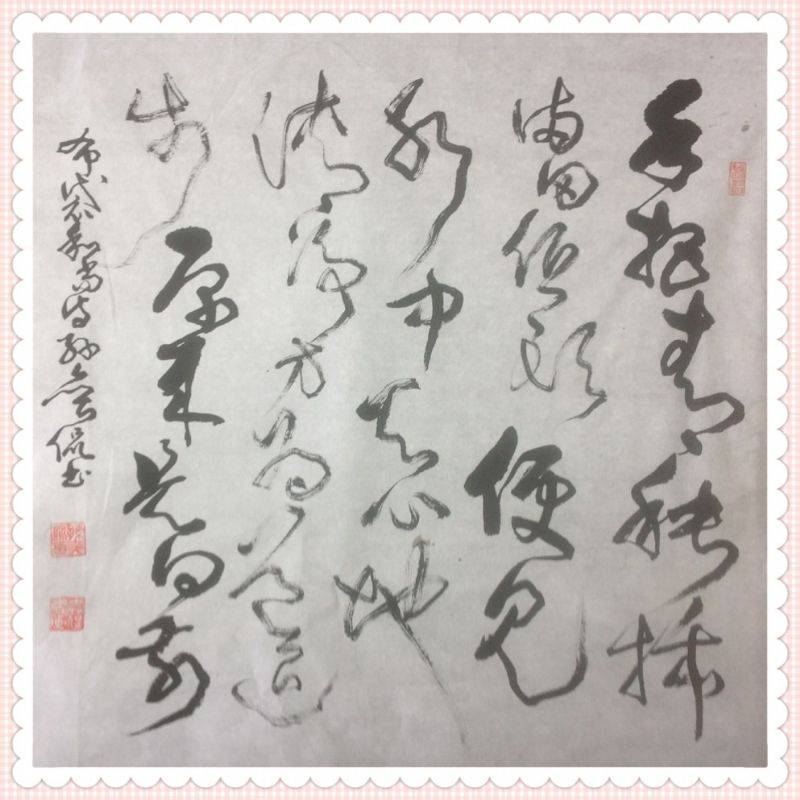 手把青秧插
满田低头便见
水中天心地
清净方为道退
步原来是向前
布袋和尚诗孙侃书